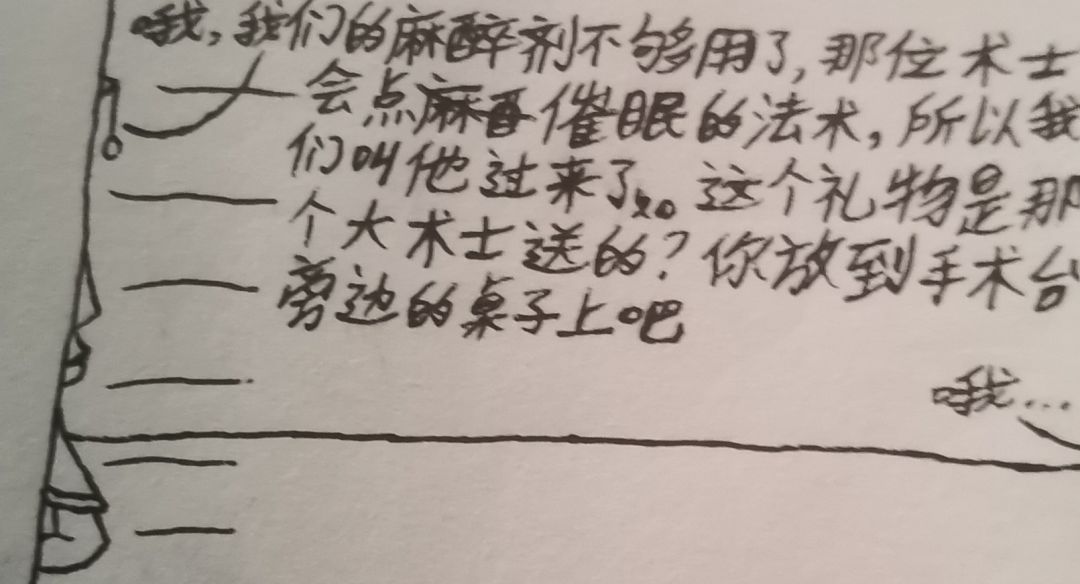 哦，我们的麻醉剂不够用了，那位术士
会点麻醉催眠的法术，所以我
们叫他过来了。这个礼物是那
个大术士送的？你放到手术台
旁边的桌子上吧
哦…